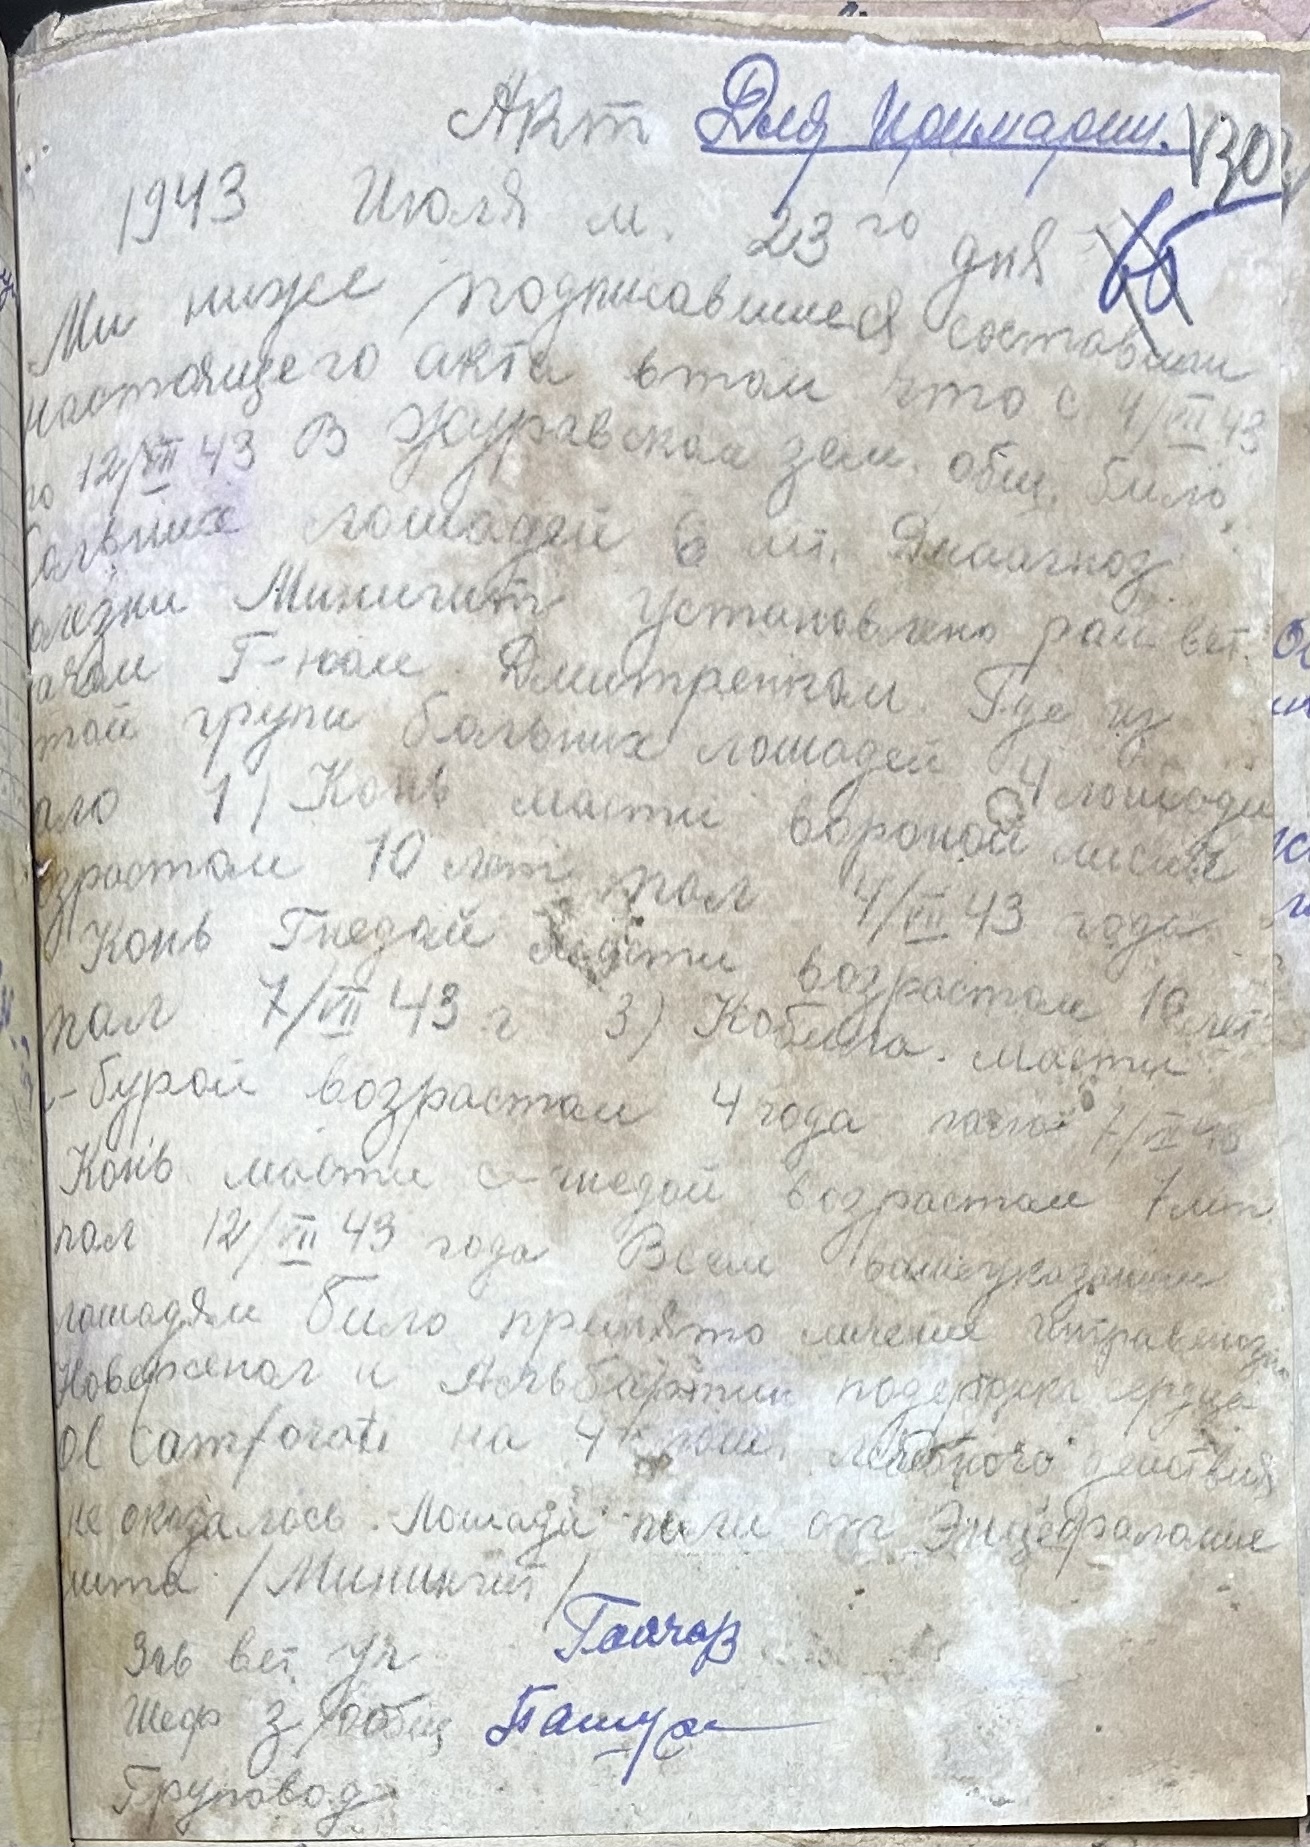 Акт Для Примарии. 130
1943 Июля м. 23го дня 65
Ми ниже подписавшиеся составили
настоящего акта втом что с 4/VII 43
по 12/VII 43 В зем. общ. било
больних лошадей 6 шт. Диагноз
олезни установлено рай вет.
ачом Дмитренком. Где из
той групи больних лошадей
ало 4 лошади
1) Конь масти вороной
зрастом 10 лет пал 4/VII 43 года
Конь Гнедой масти возрастом 10 лет
пал 7/VII 43 г 3) Кобила. масти
-бурой возрастом 4 года 7/VII 43
Конь масти с-гнедой возрастом 7 лет
пал 12/VII 43 года Всем вишеуказаним
лошадям било принято личение
и подержка сердца
ol Camforati на 4х лош. лечебного действия
не оказалось. Лошади пали от Энцефаломие
лита /Минингит/
Зав вет уч Гончар
Шеф з/общ
Груповод